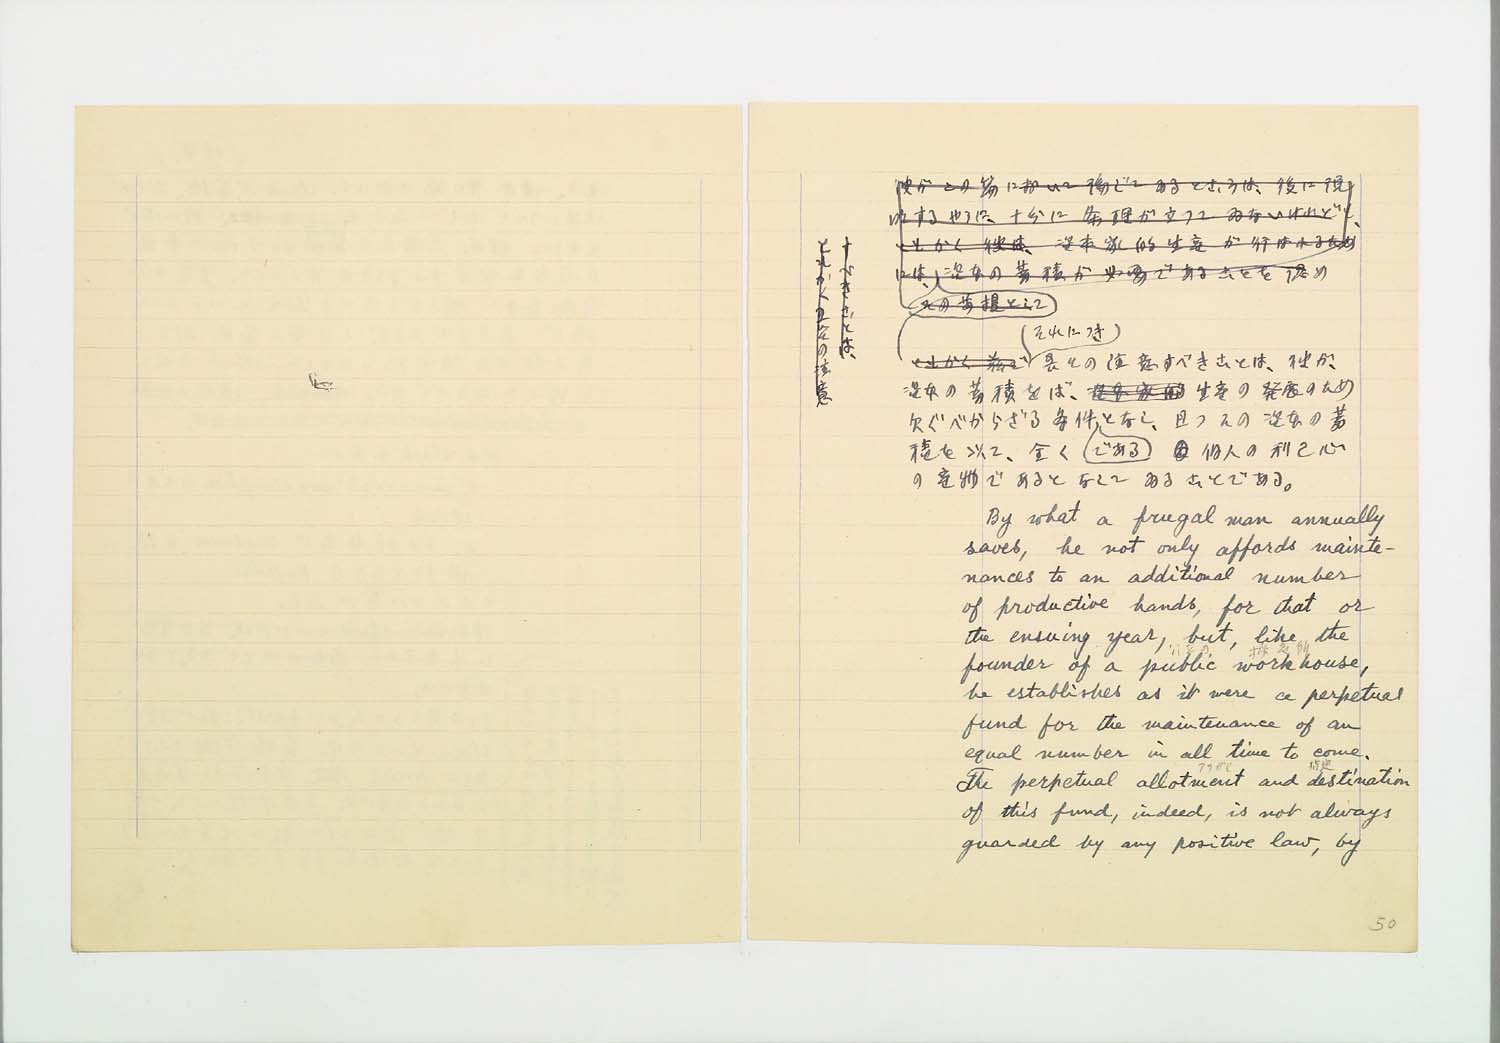 彼がこの篇において論じてゐるところは、後に現
にするやうに、十分に条理が立つてゐないけれども、
ともかく彼は、資本家的生産が行はれるため
には、資本の蓄積が必要であることを認め
その前提として
それにつき
ともかく茲で 最もの注意すべきことは、彼が、
資本の蓄積をば、資本家的生産の発展のため
欠ぐべからざる条件となし、且つその資本の蓄
積を以て、全く である 個人の利己心
の産物であるとなしてゐることである。
すべきことは、
とにかく 注意
By what a frugal man annually
saves, he not only affords mainte-
nances to an additional number
of productive hands, for that or
the ensuing year, but, like the
founder of a public workhouse,
he establishes as it were a perpetual
fund for the maintenance of an
equal number in all time to come.
The perpetual allotment and destination
of this fund, indeed, is not always
guarded by any positive law, by
50